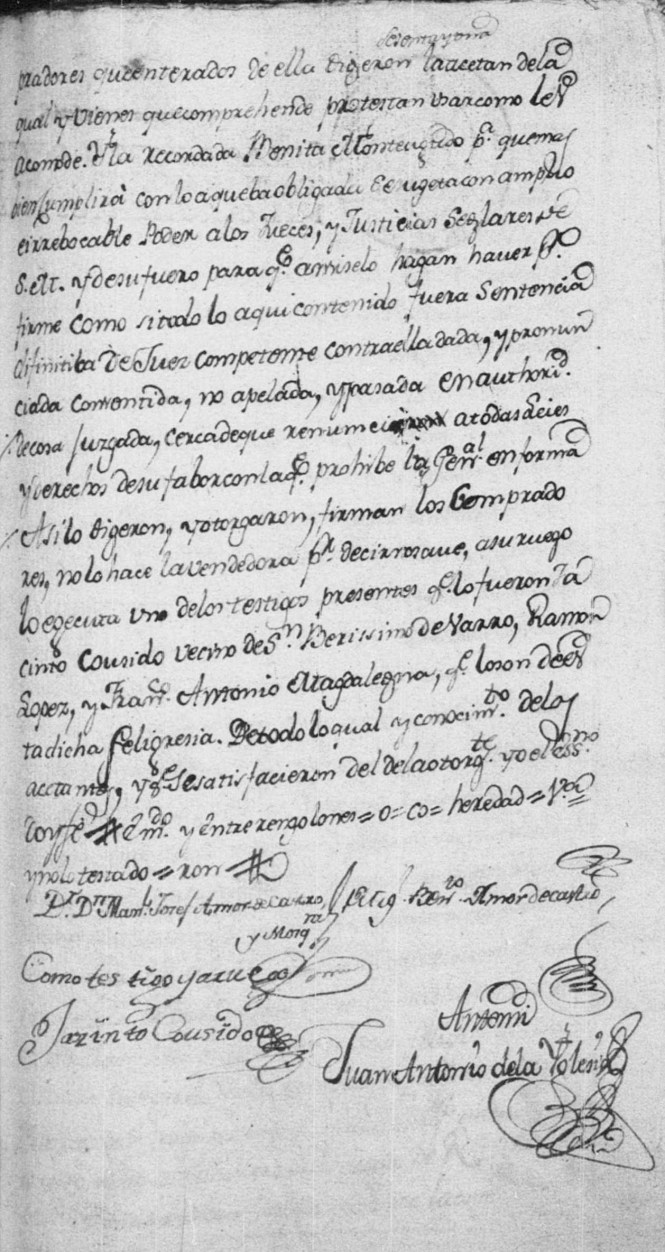 pradores que enterados de ella digeron la acetan de la
qual y vienes que comprehende protestan vsar como les
acomode. Y la recordada Benita Montenegro pa. que mas
bien cumplirá con lo a queba obligada se sugeta con amplio
e irrebocable Poder a los Jueces, y Justicias Seglares de
S. M. y de su fuero para qe. a miselo hagan haver pr.
firme como si todo lo aqui contenido fuera Sentencia
difinitiba de Juez competente contra ella dada, y pronun
ciada consentida, no apelada, y pasada en authorid.
de cosa juzgada, cerca de que renumcia a todas leies
y derechos de su fabor con la qe. prohibe la Genral. en forma
Asi lo digeron, y otorgaron, firman los Comprado
res, no lo hace la vendedora pr. decir no save, a su ruego
lo egecuta vno de los testigos presentes qe. lo fueron Ja
cinto Cousido vecino de Sn. Berissimo de Varro, Ramon
Lopez, y Franco. Antonio Magdalegna, qe. lo son de es
ta dicha feligresia. De todo lo qual y conocimto. de los
acetantes, y qe. se satisfacieron del de la otorgte. yo el essno.
doy fe # Emdo. y entre rengolones = o = co = heredad = Va.
y no lo testado = ron #
Dr. Dn. Manl. Josef Amor de Castro
y Morq
Benro. Amor de Castro
Como testigo y a ruego
Jacinto Cousido
Antemi
Juan Antonio de la Yglesia